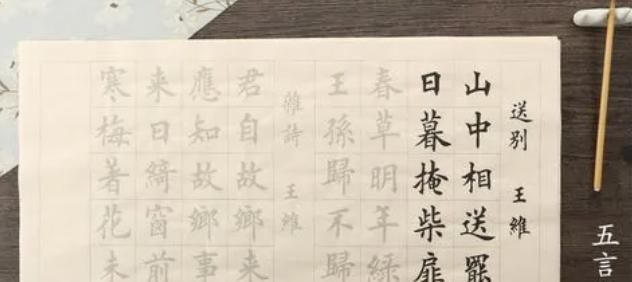 送别 王維
山中相送罷
日暮掩柴扉
春草明年緑
王孫歸不歸
雜詩 王維
君自故鄉來
應知故鄉事
来日綺窗前
寒梅著花未
五言